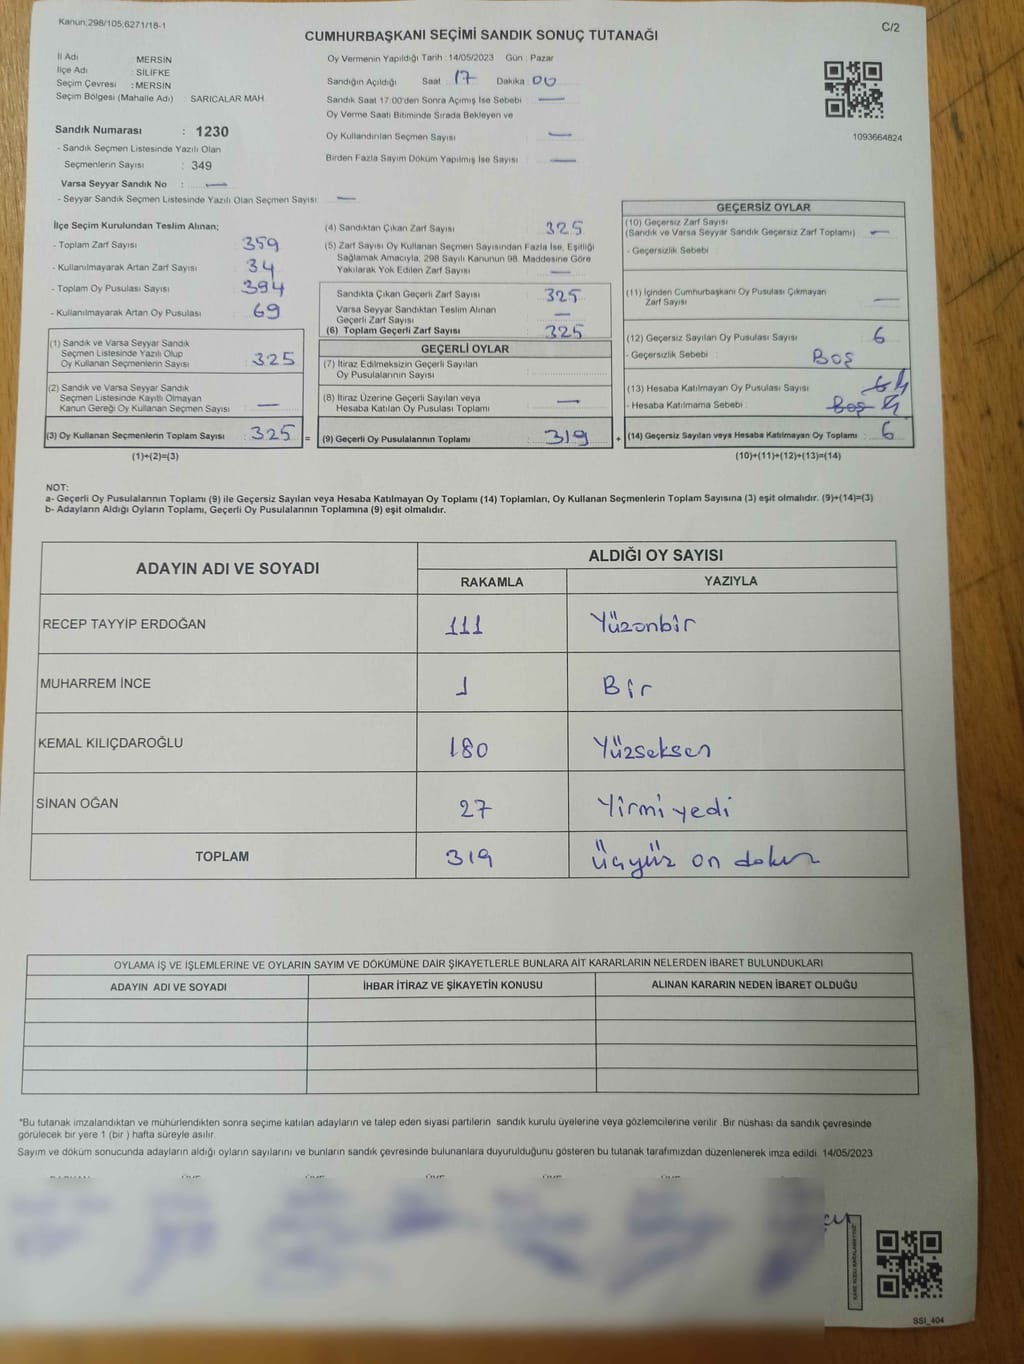 Kanun;298/105;6271/18-1
CUMHURBAŞKANI SEÇİMİ SANDIK SONUÇ TUTANAĞI
C/2
İl Adı : MERSİN
İlçe Adı : SİLİFKE
Seçim Çevresi : MERSİN
Seçim Bölgesi (Mahalle Adı) : SARICALAR MAH
Oy Vermenin Yapıldığı Tarih : 14/05/2023 Gün : Pazar
Sandığın Açıldığı Saat : 17 Dakika : 00
Sandık Saat 17:00'den Sonra Açımış İse Sebebi : —
Oy Verme Saati Bitiminde Sırada Bekleyen ve
Oy Kullandırılan Seçmen Sayısı : —
Birden Fazla Sayım Döküm Yapılmış İse Sayısı : —
1093664824
Sandık Numarası : 1230
- Sandık Seçmen Listesinde Yazılı Olan
Seçmenlerin Sayısı : 349
Varsa Seyyar Sandık No : —
- Seyyar Sandık Seçmen Listesinde Yazılı Olan Seçmen Sayısı: —
İlçe Seçim Kurulundan Teslim Alınan;
- Toplam Zarf Sayısı 359
- Kullanılmayarak Artan Zarf Sayısı 34
- Toplam Oy Pusulası Sayısı 394
- Kullanılmayarak Artan Oy Pusulası 69
(1) Sandık ve Varsa Seyyar Sandık
Seçmen Listesinde Yazılı Olup
Oy Kullanan Seçmenlerin Sayısı 325
(2) Sandık ve Varsa Seyyar Sandık
Seçmen Listesinde Kayıtlı Olmayan
Kanun Gereği Oy Kullanan Seçmen Sayısı —
(3) Oy Kullanan Seçmenlerin Toplam Sayısı 325 =
(1)+(2)=(3)
(4) Sandıktan Çıkan Zarf Sayısı 325
(5) Zarf Sayısı Oy Kullanan Seçmen Sayısından Fazla İse, Eşitliği
Sağlamak Amacıyla, 298 Sayılı Kanunun 98. Maddesine Göre
Yakılarak Yok Edilen Zarf Sayısı —
Sandıkta Çıkan Geçerli Zarf Sayısı 325
Varsa Seyyar Sandıktan Teslim Alınan
Geçerli Zarf Sayısı —
(6) Toplam Geçerli Zarf Sayısı 325
GEÇERLİ OYLAR
(7) İtiraz Edilmeksizin Geçerli Sayılan
Oy Pusulalarının Sayısı
(8) İtiraz Üzerine Geçerli Sayılan veya
Hesaba Katılan Oy Pusulası Toplamı —
(9) Geçerli Oy Pusulalarının Toplamı 319 +
GEÇERSİZ OYLAR
(10) Geçersiz Zarf Sayısı
(Sandık ve Varsa Seyyar Sandık Geçersiz Zarf Toplamı) : —
- Geçersizlik Sebebi
(11) İçinden Cumhurbaşkanı Oy Pusulası Çıkmayan
Zarf Sayısı —
(12) Geçersiz Sayılan Oy Pusulası Sayısı : 6
- Geçersizlik Sebebi : Boş
(13) Hesaba Katılmayan Oy Pusulası Sayısı : 6
- Hesaba Katılmama Sebebi : Boş
(14) Geçersiz Sayılan veya Hesaba Katılmayan Oy Toplamı : 6
(10)+(11)+(12)+(13)=(14)
NOT:
a- Geçerli Oy Pusulalarının Toplamı (9) ile Geçersiz Sayılan veya Hesaba Katılmayan Oy Toplamı (14) Toplamları, Oy Kullanan Seçmenlerin Toplam Sayısına (3) eşit olmalıdır. (9)+(14)=(3)
b- Adayların Aldığı Oyların Toplamı, Geçerli Oy Pusulalarının Toplamına (9) eşit olmalıdır.
ADAYIN ADI VE SOYADI
ALDIĞI OY SAYISI
RAKAMLA YAZIYLA
RECEP TAYYİP ERDOĞAN 111 Yüzonbir
MUHARREM İNCE 1 Bir
KEMAL KILIÇDAROĞLU 180 Yüzseksen
SİNAN OĞAN 27 Yirmi yedi
TOPLAM 319 üçyüz on dokuz
OYLAMA İŞ VE İŞLEMLERİNE VE OYLARIN SAYIM VE DÖKÜMÜNE DAİR ŞİKAYETLERLE BUNLARA AİT KARARLARIN NELERDEN İBARET BULUNDUKLARI
ADAYIN ADI VE SOYADI İHBAR İTİRAZ VE ŞİKAYETİN KONUSU ALINAN KARARIN NEDEN İBARET OLDUĞU
*Bu tutanak imzalandıktan ve mühürlendikten sonra seçime katılan adayların ve talep eden siyasi partilerin sandık kurulu üyelerine veya gözlemcilerine verilir. Bir nüshası da sandık çevresinde
görülecek bir yere 1 (bir ) hafta süreyle asılır.
Sayım ve döküm sonucunda adayların aldığı oyların sayılarını ve bunların sandık çevresinde bulunanlara duyurulduğunu gösteren bu tutanak tarafımızdan düzenlenerek imza edildi. 14/05/2023
SSI_404